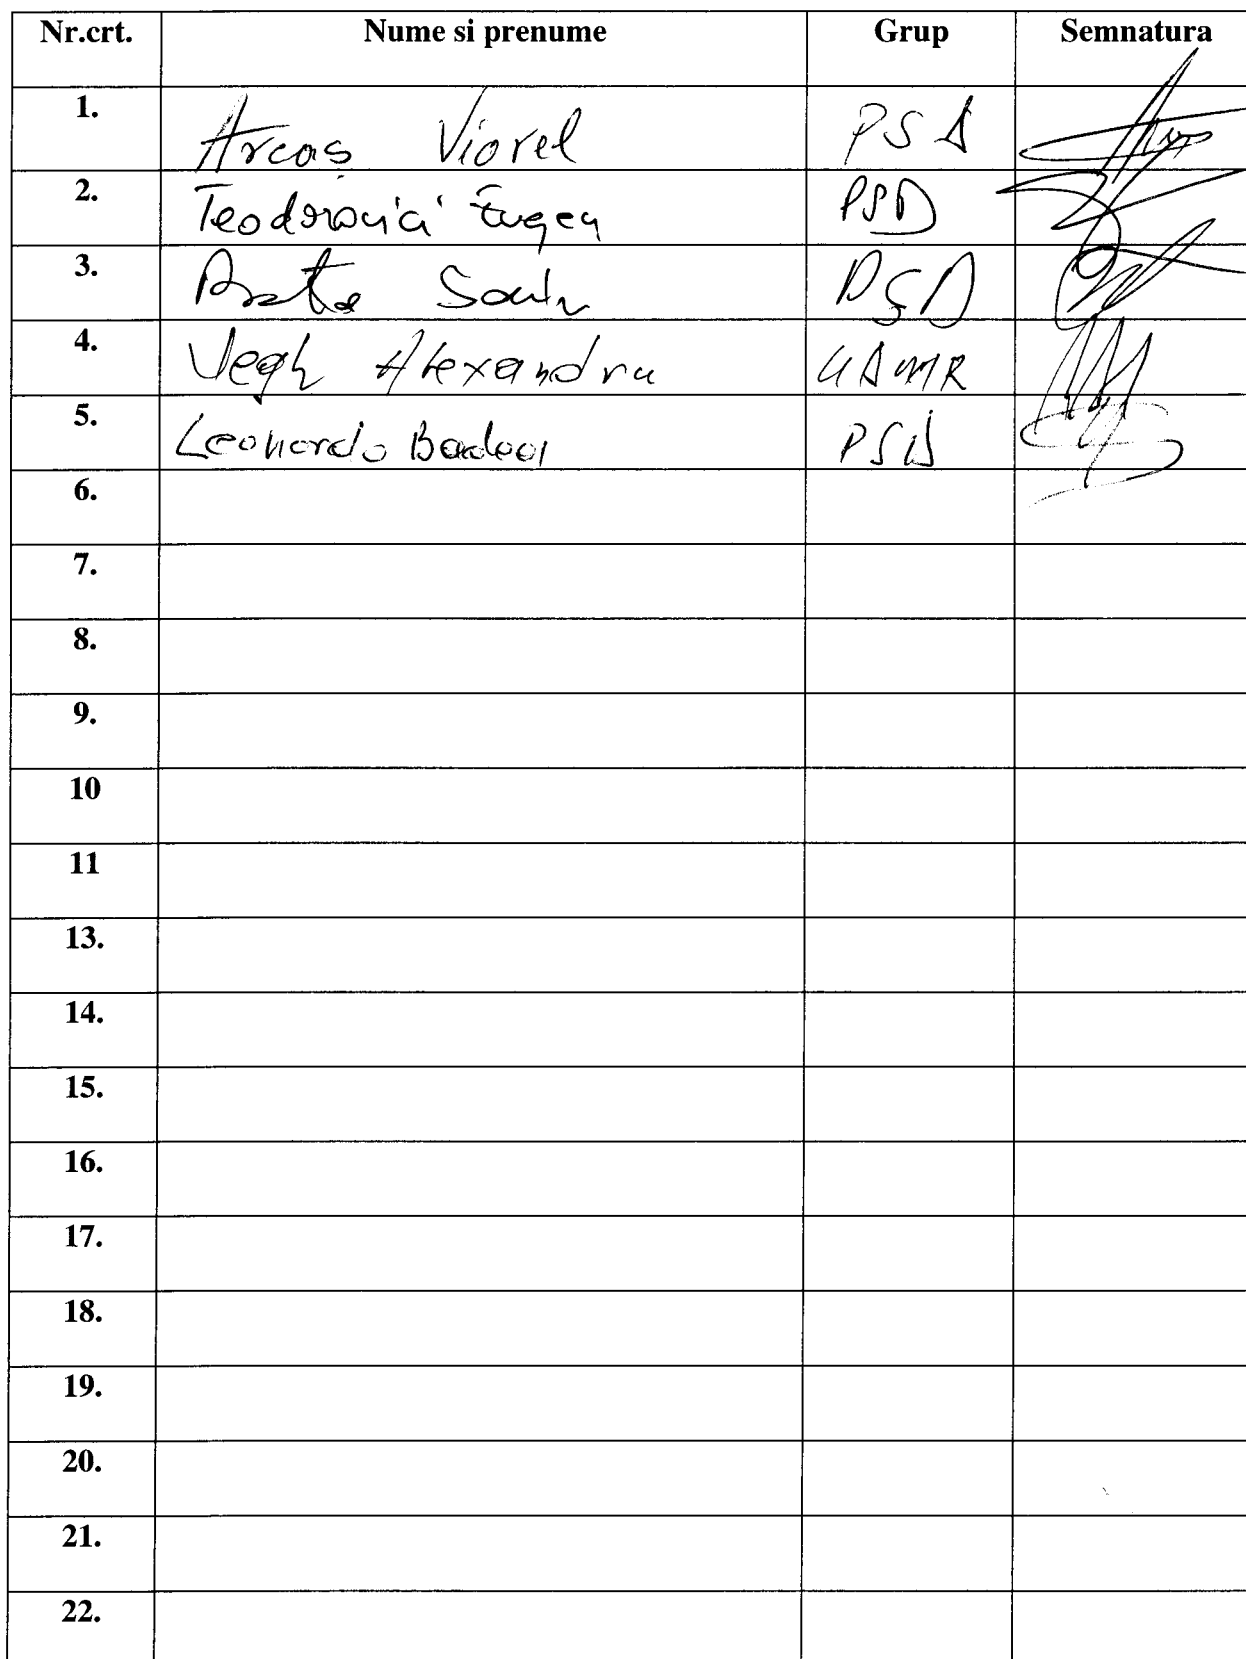 Nr.crt. Nume si prenume Grup Semnatura
1. Arcaș Viorel PSD
2. Teodorovici Eugen PSD
3. PSD
4. Vegh Alexandru UDMR
5. Leonardo Badea PSD
6.
7.
8.
9.
10
11
13.
14.
15.
16.
17.
18.
19.
20.
21.
22.